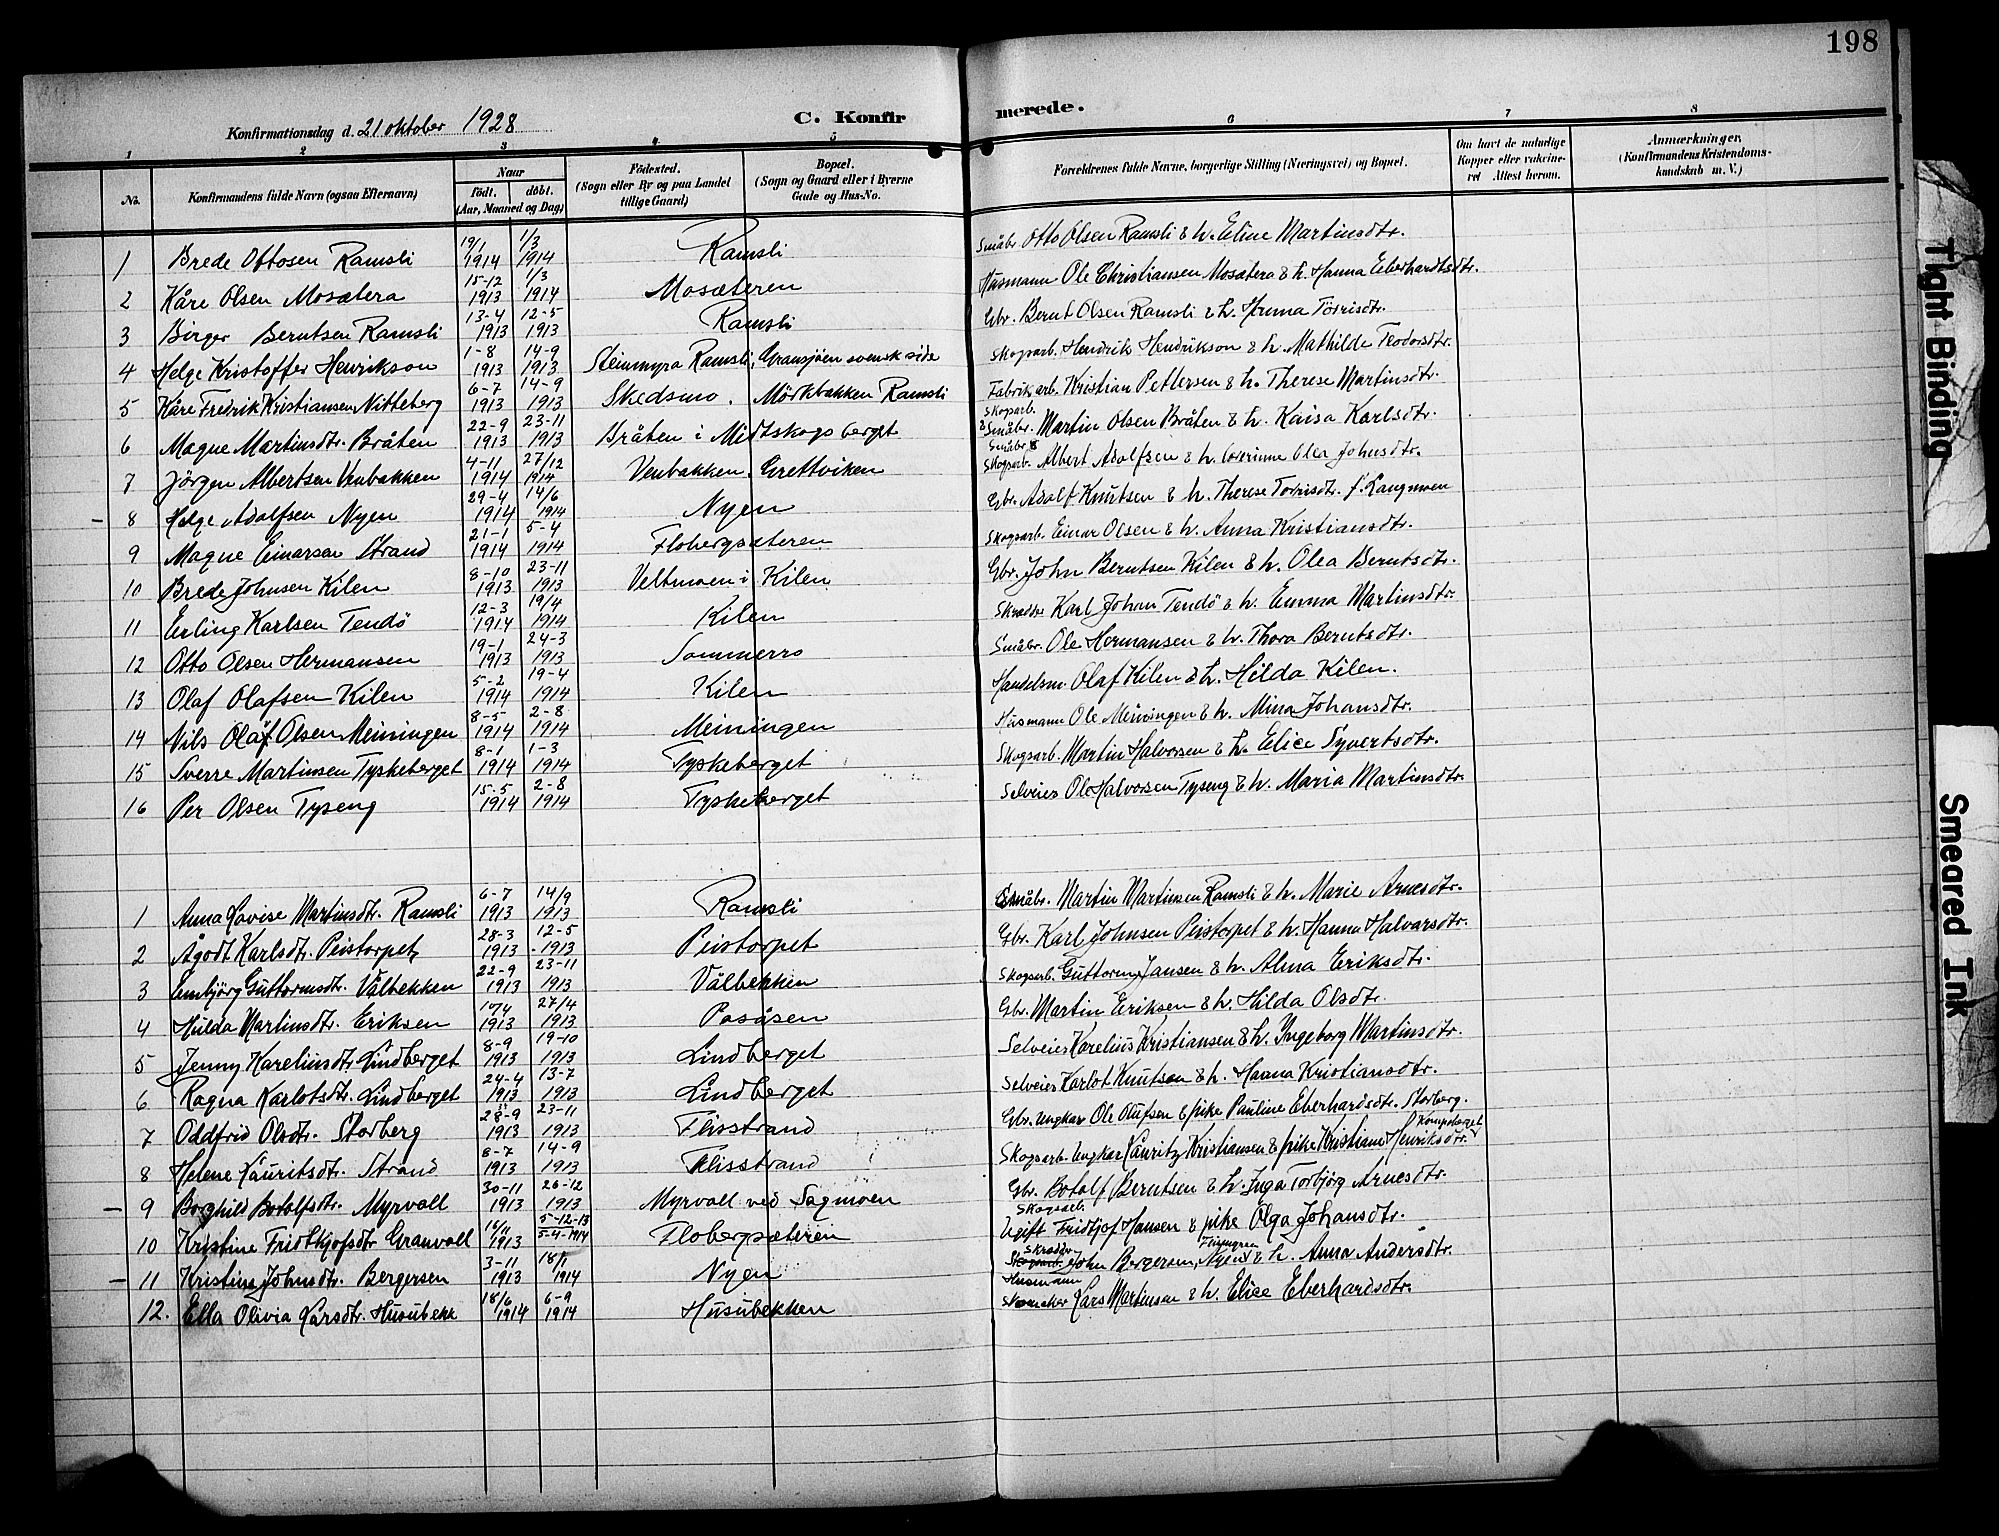 198
Konfirmationsdag d. 21 oktober 1928
C. Konfirmerede.
1 2 3 4 5 6 7 8
No.
Konfirmandens fulde Navn (ogsaa Efternavn)
Naar
födt. döbt.
(Aar, Maaned og Dag)
Födested.
(Sogn eller By og paa Landet tillige Gaard)
Bopæl.
(Sogn og Gaard eller i Byerne Gade og Hus-No.
Forældrenes fulde Navne, borgerlige Stilling (Næringsvei) og Bopæl.
Om havt de naturlige Kopper eller vaccineret. Attest herom.
Anmærkninger. (Konfirmandens Kristendomskundskab m. V.)
1 Brede Ottosen Ramsli 19/1 1914 1/3 1914 Ramsli Småbr. Otto Olsen Ramsli & h. Eline Martinsdtr.
2 Kåre Olsen Mosætera 15-12 1913 1/3 1914 Mosæteren Husmann Ole Christiansen Mosætera & h. Hanna Eberhardtsdtr.
3 Birger Berntsen Ramsli 13-4 1913 12-5 1913 Ramsli Gbr. Bernt Olsen Ramsli & h. Torrisdtr.
4 Helge Kristoffer Henrikson 1-8 1913 14-9 1913 Steinmyra Ramsli, Gransjøen svensk side Skogsarb. Hendrik Hendrikson & h. Mathilde Teodorsdtr.
5 Kåre Fredrik Kristiansen Nitteberg 6-7 1913 14-9 1913 Skedsmo. Mörkbakken Ramsli Fabrikarb. Kristian Pettersen & h. Therese Martinsdtr.
6 Magne Martinsdtr. Bråten 22-9 1913 23-11 1913 Bråten i Midtskogsberget Skogsarb. & Småbr. Martin Olsen Bråten & h. Kaisa Karlsdtr.
7 Jörgen Albertsen Venbakken 4-11 1914 27/12 1914 Venbakken. Grettviken Småbr & Skogsarb. Albert Adolfsen & h. Olea Johnsdtr.
8 Helge Adolfsen Nyen 29-4 1914 14/6 1914 Nyen Gbr. Adolf Knutsen & h. Therese Torrisdtr. f. Langmoen
9 Magne Einarsen Strand 21-1 1914 5-4 1914 Flobergsæteren Skogsarb. Einar Olsen & h. Anna Kristiansdtr.
10 Brede Johnsen Kilen 8-10 1913 23-11 1913 Veltmoen i Kilen Gbr. John Berntsen Kilen & h. Olea Berntsdtr.
11 Erling Karlsen Tendö 12-3 1914 19/4 1914 Kilen Karl Johan Tendö & h. Emma Martinsdtr
12 Otto Olsen Hermansen 19-1 1913 24-3 1913 Sommerro Småbr. Ole Hermansen & h. Thora Berntsdtr.
13 Olaf Olafsen Kilen 5-2 1914 19-4 1914 Kilen Handelsm. Olaf Kilen & h. Hilda Kilen.
14 Nils Olaf Olsen Meiningen 8-5 1914 2-8 1914 Meiningen Husmann Ole Meiningen & h. Mina Johansdtr.
15 Sverre Martinsen Tyskeberget 8-1 1914 1-3 1914 Tyskeberget Skogsarb. Martin Halvorsen & h. Elice Syvertsdtr.
16 Per Olsen Tyseng 15-5 1914 2-8 1914 Tyskeberget Selveier Ole Halvorsen Tyseng & h. Maria Martinsdtr.
1 Anna Lovise Martinsdtr. Ramsli 6-7 1913 14/9 1913 Ramsli Småbr. Martin Martinsen Ramsli & h. Marie Arnesdtr.
2 Ågodt Karlsdtr. Peistorpet 28-3 1913 12-5 1913 Peistorpet Gbr. Karl Johnsen Peistorpet & h. Hanna Halvarsdtr.
3 Embjörg Guttormsdtr. Vålbekken 22-9 1913 23-11 1913 Vålbekken Skogsarb. Guttorm Jansen & h. Alma Eriksdtr.
4 Hilda Martinsdtr. Eriksen 1913 27/4 1913 Posåsen Gbr. Martin Eriksen & h. Hilda Olsdtr.
5 Jenny Kareliusdtr. Lindberget 8-9 1913 19-10 1913 Lindberget Selveier Karelius Kristiansen & h. Ingeborg Martinsdtr.
6 Ragna Karlotsdtr. Lindberget 24-4 1913 13-7 1913 Lindberget Selveier Karlot Knutsen & h. Hanna Kristiansdtr.
7 Oddfrid Olsdtr. Storberg 28-9 1913 23-11 1913 Flisstrand Gbr. Ungkar Ole Olufsen & pike Pauline Eberhardsdtr. Storberg.
8 Helene Lauritsdtr. Strand 8-7 1913 14-9 1913 Flisstrand Skogsarb. Ungkar Lauritz Kristiansen & pike Kristiane Henriksdtr. Kampeberget
9 Borghild Botolfsdtr. Myrvoll 30-11 1913 26-12 1913 Myrvoll ved Sagmoen Gbr. Botolf Berntsen & h. Inga Torbjörg Arnesdtr.
10 Kristine Fridtkjofsdtr Granvoll 16/11 1913 5-12-13 5-4-1914 Flobergsæteren Skogsarb. Ugift Fridtjof Hansen & pike Olga Johansdtr.
11 Kristine Johnsdtr. Bergersen 3-11 1913 18/1 1914 Nyen John Bergersen, Nyen & h. Anna Andersdtr.
12. Ella Olivia Larsdtr. Husubekk 18/6 1914 6-9 1914 Husubekken Husmann Skomaker Lars Martinsen & h. Elice Eberhardsdtr.
Tight Binding
Smeared Ink